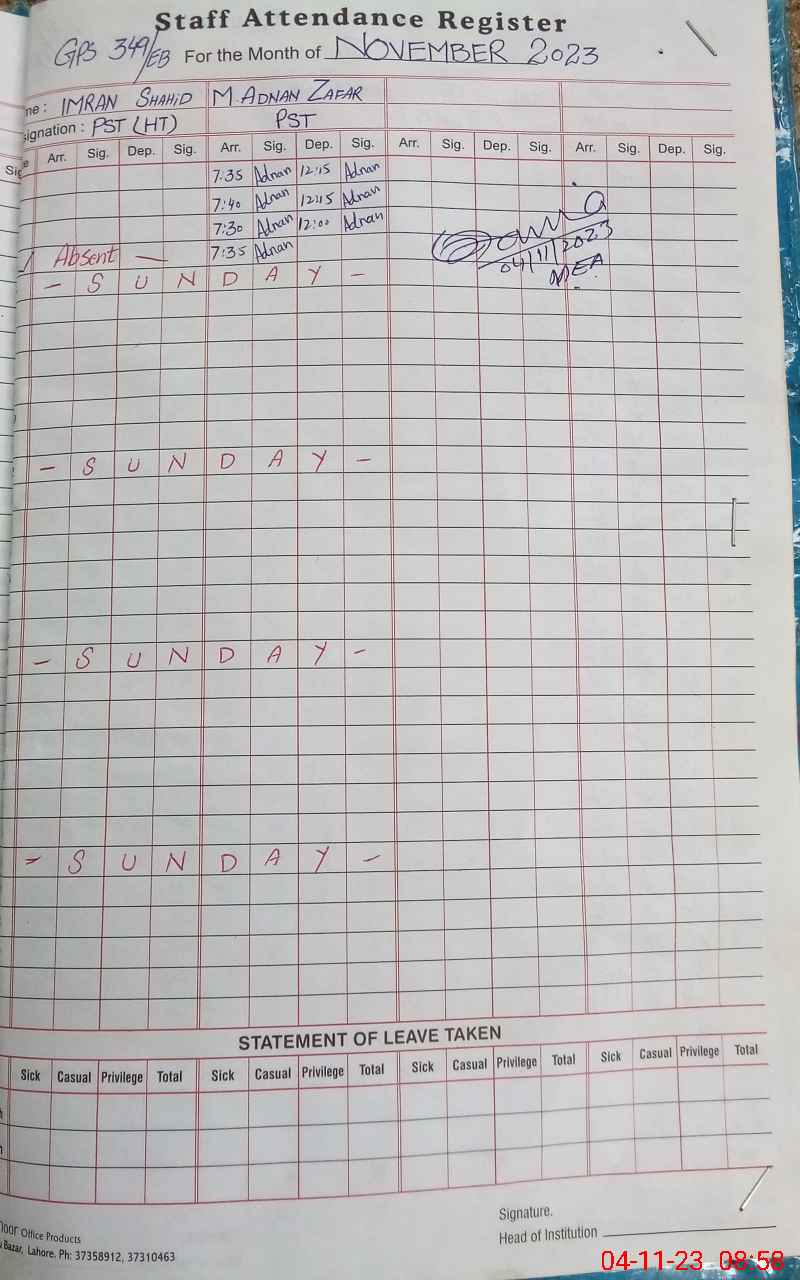 Staff Attendance Register
GPS 349/EB For the Month of NOVEMBER 2023
me : IMRAN SHAHID M. ADNAN ZAFAR
signation : PST (HT) PST
Sig Arr. Sig. Dep. Sig. Arr. Sig. Dep. Sig. Arr. Sig. Dep. Sig. Arr. Sig. Dep. Sig.
7:35 Adnan 12:15 Adnan
7:40 Adnan 12:15 Adnan
7:30 Adnan 12:00 Adnan
Absent — 7:35 Adnan
04/11/2023
MEA
- S U N D A Y -
- S U N D A Y -
- S U N D A Y -
- S U N D A Y -
STATEMENT OF LEAVE TAKEN
Sick Casual Privilege Total Sick Casual Privilege Total Sick Casual Privilege Total Sick Casual Privilege Total
loor Office Products
Bazar, Lahore. Ph: 37358912, 37310463
Signature.
Head of Institution
04-11-23 08:58